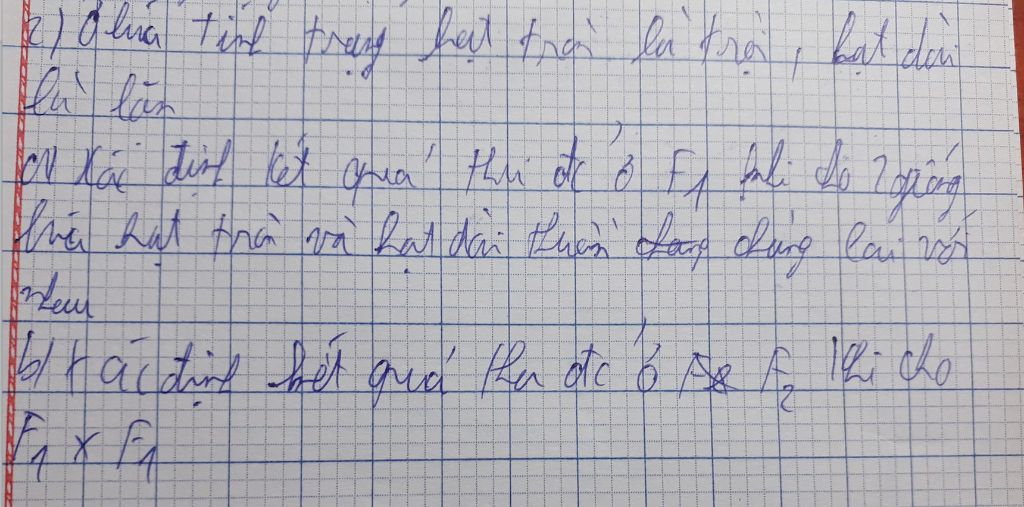 2) Ở lúa tính trạng hạt tròn là trội, hạt dài
là lặn
a) Xác định kết quả thu đc ở F1 khi cho 2 giống
lúa hạt tròn và hạt dài thuần chủng lai với
nhau
b) Xác định kết quả thu đc ở F2 khi cho
F1 x F1